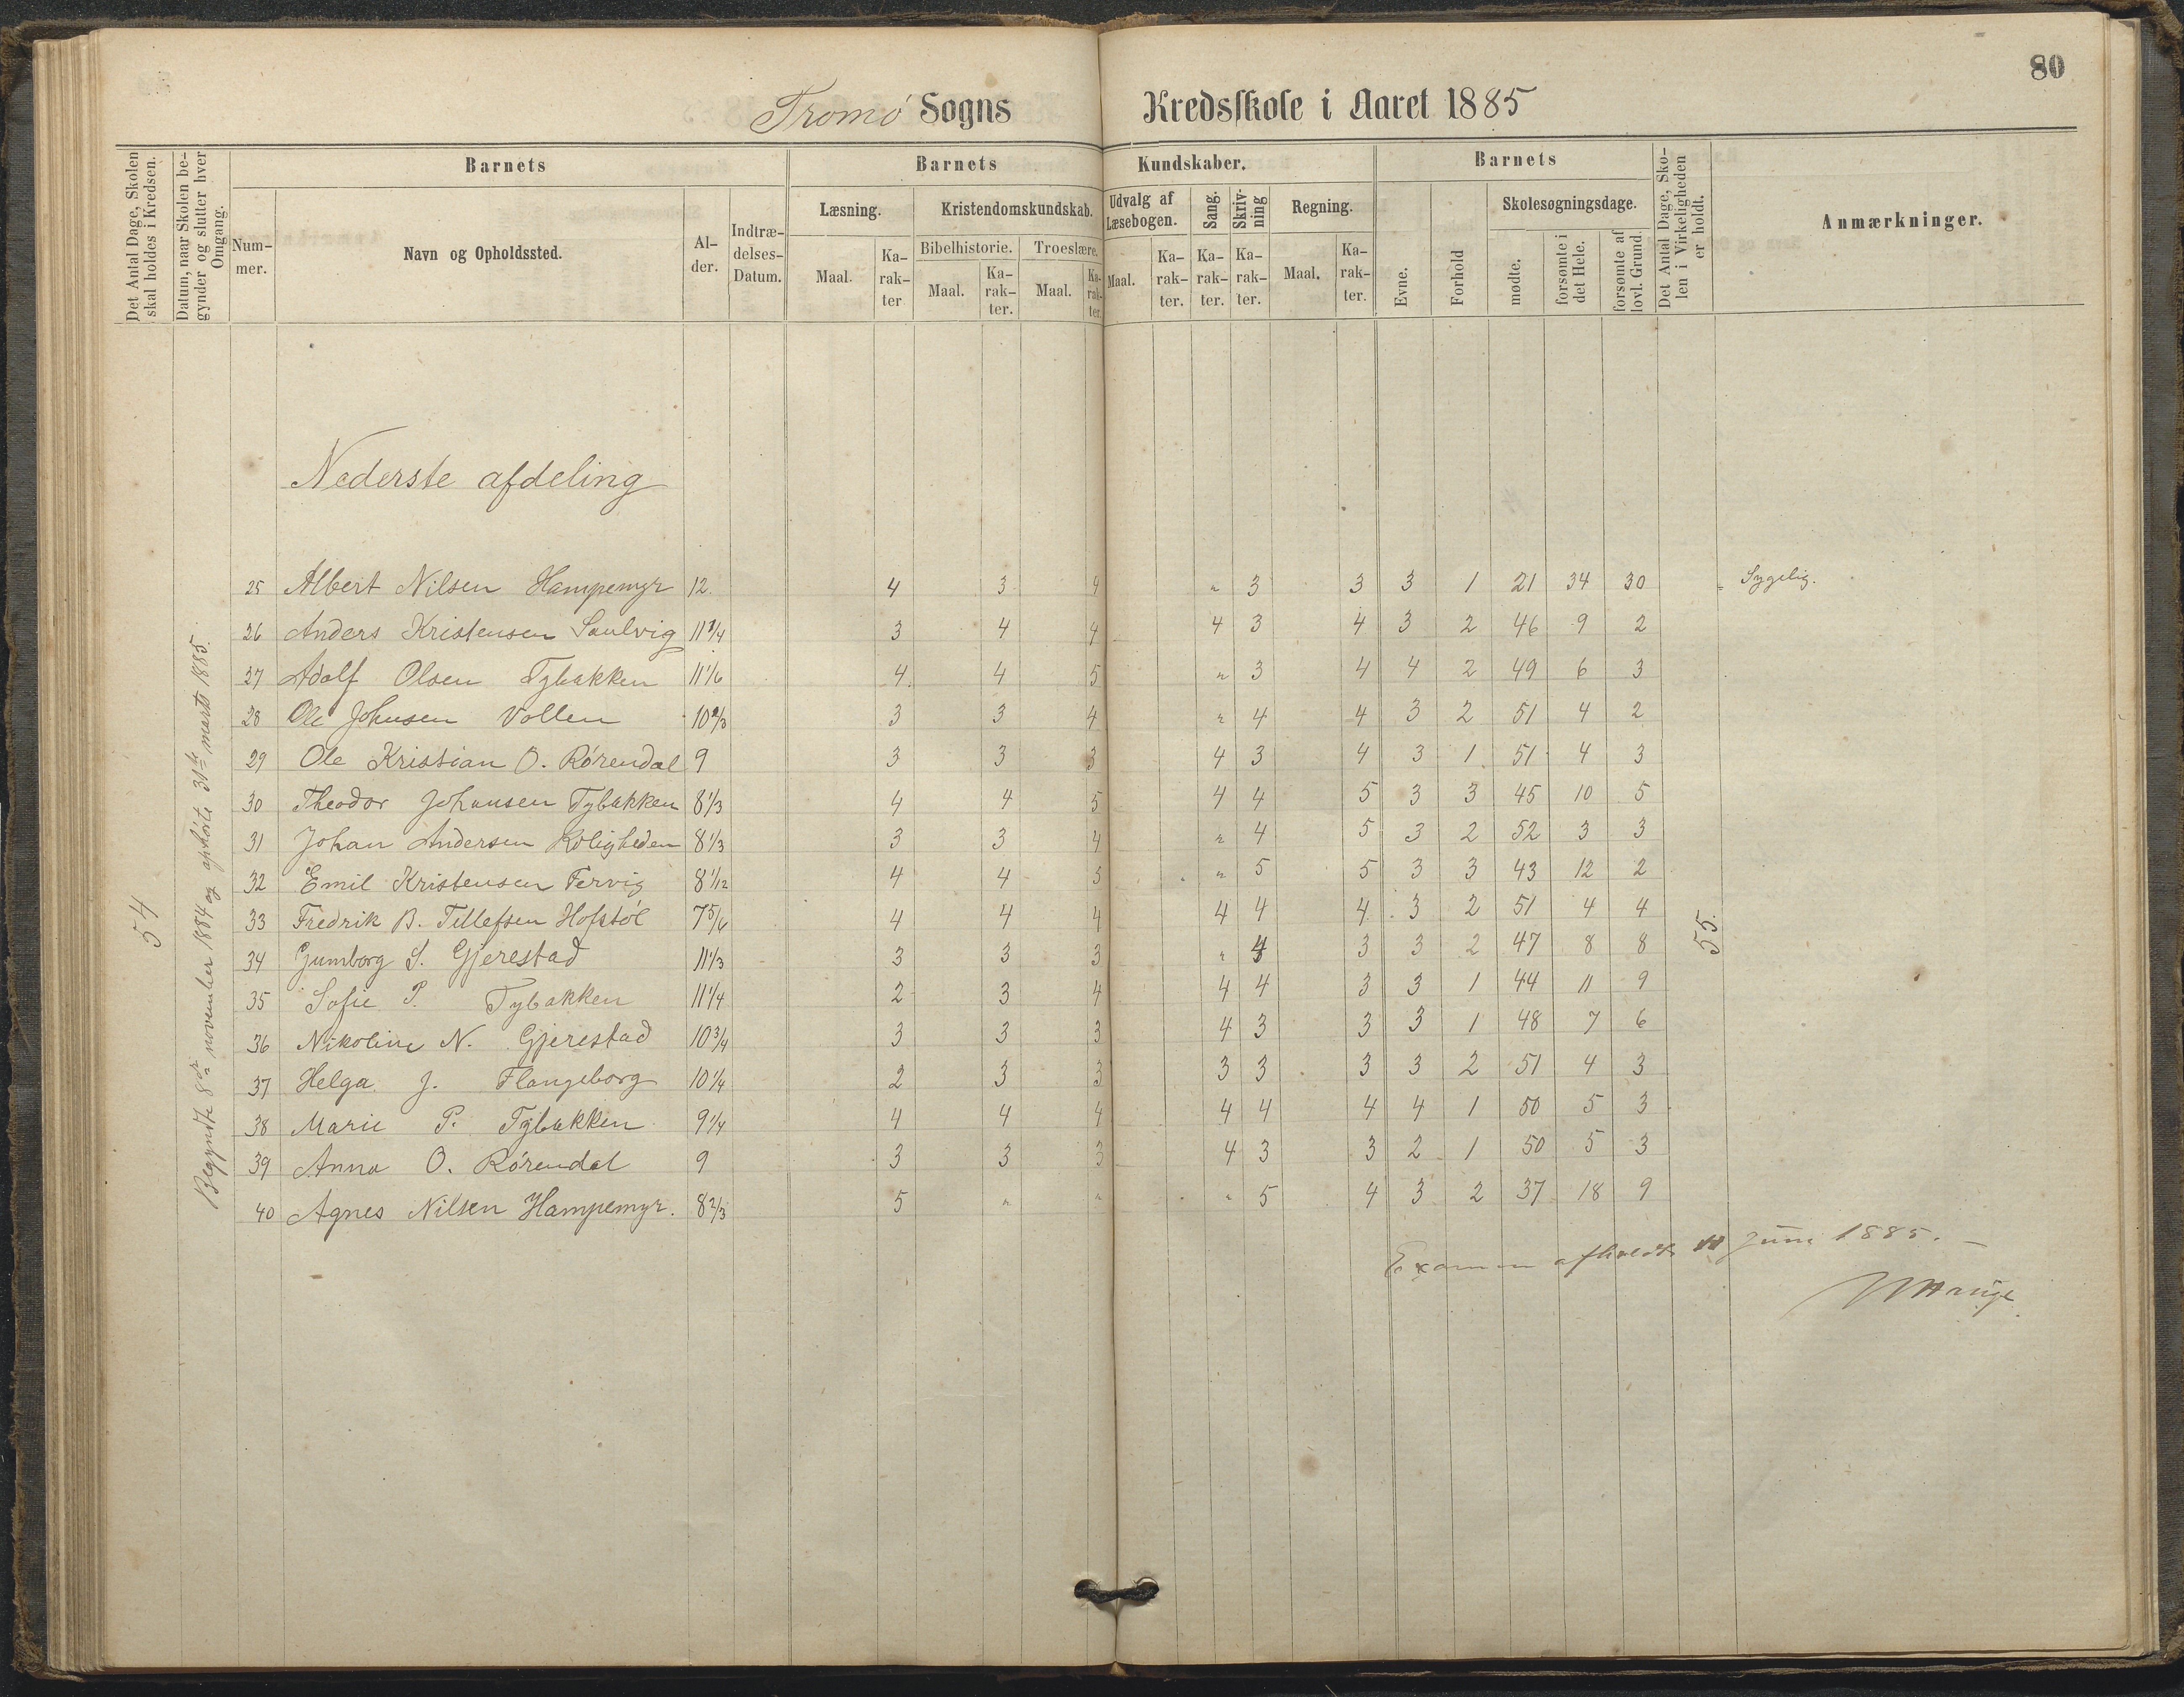 80
Tromø Sogns Kredsskole i Aaret 1885
Det Antal Dage, Skolen skal holdes i Kredsen.
Datum, naar Skolen begynder og slutter hver Omgang.
Barnets
Barnets Kundskaber.
Barnets
Det Antal Dage, Skolen i Virkeligheden er holdt.
Anmærkninger.
Nummer.
Navn og Opholdssted.
Alder.
Indtrædelses-Datum.
Læsning.
Kristendomskundskab.
Udvalg af Læsebogen.
Sang.
Skrivning
Regning.
Evne.
Forhold
Skolesøgningsdage.
Bibelhistorie.
Troeslære.
Maal.
Karakter
Maal.
Karakter.
Maal.
Karakter.
Maal.
Karakter.
Karakter.
Karakter.
Maal.
Karakter.
mødte.
forsømte i det Hele.
forsømte af lovl. Grund.
54
Begyndte 8de november 1884 og ophørte 31te marts 1885.
Nederste afdeling
25 Albert Nilsen Hampemyr 12. 4 3 4 " 3 3 3 1 21 34 30 Sygelig.
26 Anders Kristensen Saulvig 11 3/4 3 4 4 4 3 4 3 2 46 9 2
27 Adolf Olsen Tybakken 11 1/6 4. 4 5 " 3 4 4 2 49 6 3
28 Ole Johnsen Vollen 10 2/3 3 3 4 " 4 4 3 2 51 4 2
29 Ole Kristian O. Rørendal 9 3 3 3 4 3 4 3 1 51 4 3
30 Theodor Johansen Tybakken 8 1/3 4 4 5 4 4 5 3 3 45 10 5
31 Johan Andersen Roligheden 8 1/3 3 3 4 " 4 5 3 2 52 3 3
32 Emil Kristensen Fervig 8 1/12 4 4 5 " 5 5 3 3 43 12 2
33 Fredrik B. Tellefsen Hofstøl 7 5/6 4 4 4 4 4 4 3 2 51 4 4
34 Gumborg S. Gjerestad 11 1/3 3 3 3 " 4 3 3 2 47 8 8
55.
35 Sofie P. Tybakken 11 1/4 2 3 4 4 4 3 3 1 44 11 9
36 Nikoline N. Gjerestad 10 3/4 3 3 3 4 3 3 3 1 48 7 6
37 Helga J. Flangeborg 10 1/4 2 3 3 3 3 3 3 2 51 4 3
38 Marie P. Tybakken 9 1/4 4 4 4 4 4 4 4 1 50 5 3
39 Anna O. Rørendal 9 3 3 3 4 3 3 2 1 50 5 3
40 Agnes Nilsen Hampemyr. 8 2/3 5 " " " 5 4 3 2 37 18 9
Examen afholdt 11 Juni 1885.